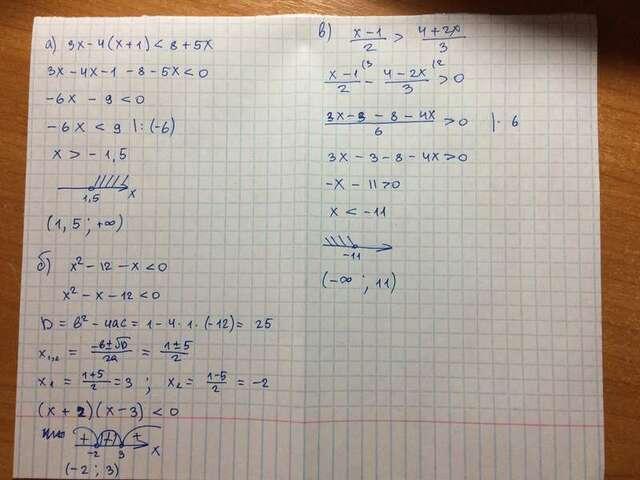 а) 3x - 4(x+1) < 8 + 5x
3x - 4x - 1 - 8 - 5x < 0
-6x - 9 < 0
-6x < 9 |: (-6)
x > -1,5
1,5 x
(1,5 ; +∞)
б) x² - 12 - x < 0
x² - x - 12 < 0
D = b² - 4ac = 1 - 4·1·(-12) = 25
x₁,₂ = (-b±√D)/2a = (1±5)/2
x₁ = (1+5)/2 = 3 ; x₂ = (1-5)/2 = -2
(x + 2)(x - 3) < 0
+ + -2 3 x
(-2 ; 3)
в) (x-1)/2 > (4+2x)/3
(x-1)/2 (3 - (4-2x)/3 (2 > 0
(3x - 3 - 8 - 4x)/6 > 0 |· 6
3x - 3 - 8 - 4x > 0
-x - 11 > 0
x < -11
-11
(-∞ ; 11)